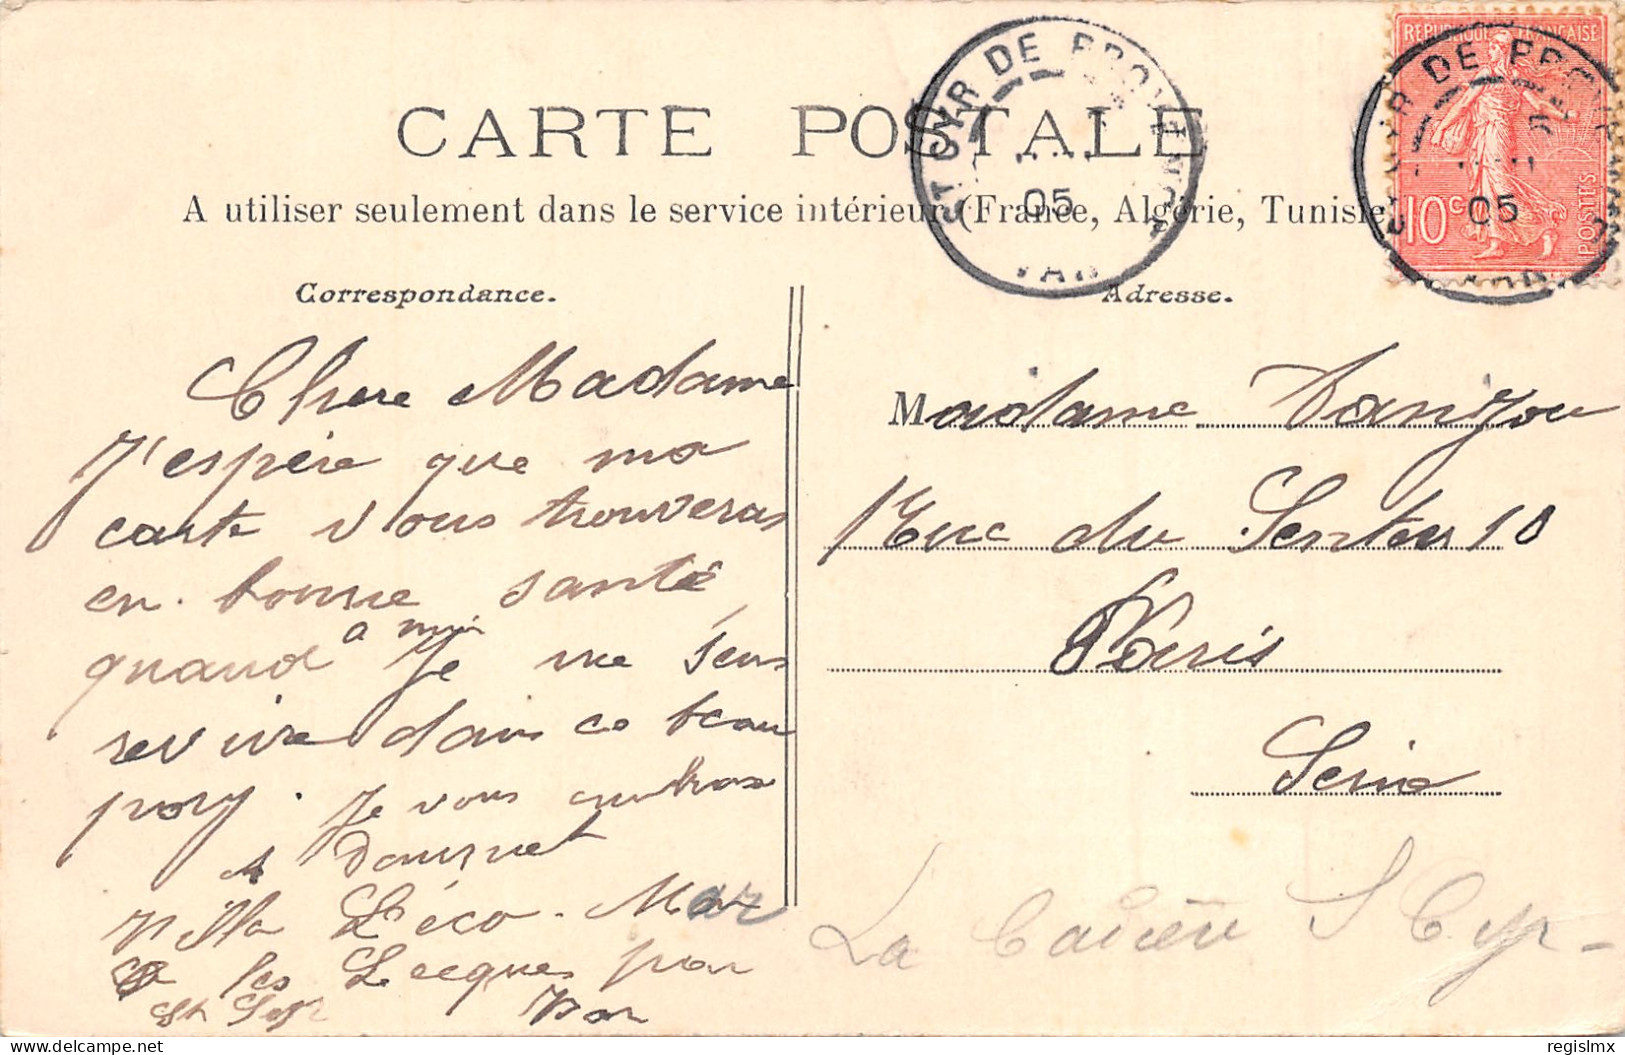 CARTE POSTALE
A utiliser seulement dans le service intérieur (France, Algérie, Tunisie
ST CYR DE PROVENCE
05
VAR
REPUBLIQUE FRANÇAISE
10c
POSTES
ST CYR DE PROVENCE
05
VAR
Correspondance.
Chere Madame
J'espére que ma
carte vous trouveras
en bonne santé
quand a moi Je me sens
revivre dans ce beau
pay. Je vous embrasse
A
Villa L'éco. Mar
les Lecques par
St Var
Adresse.
Madame
Rue du Sentier 10
Paris
Seine
La Cadière S Cyr-
regislmx
delcampe.net